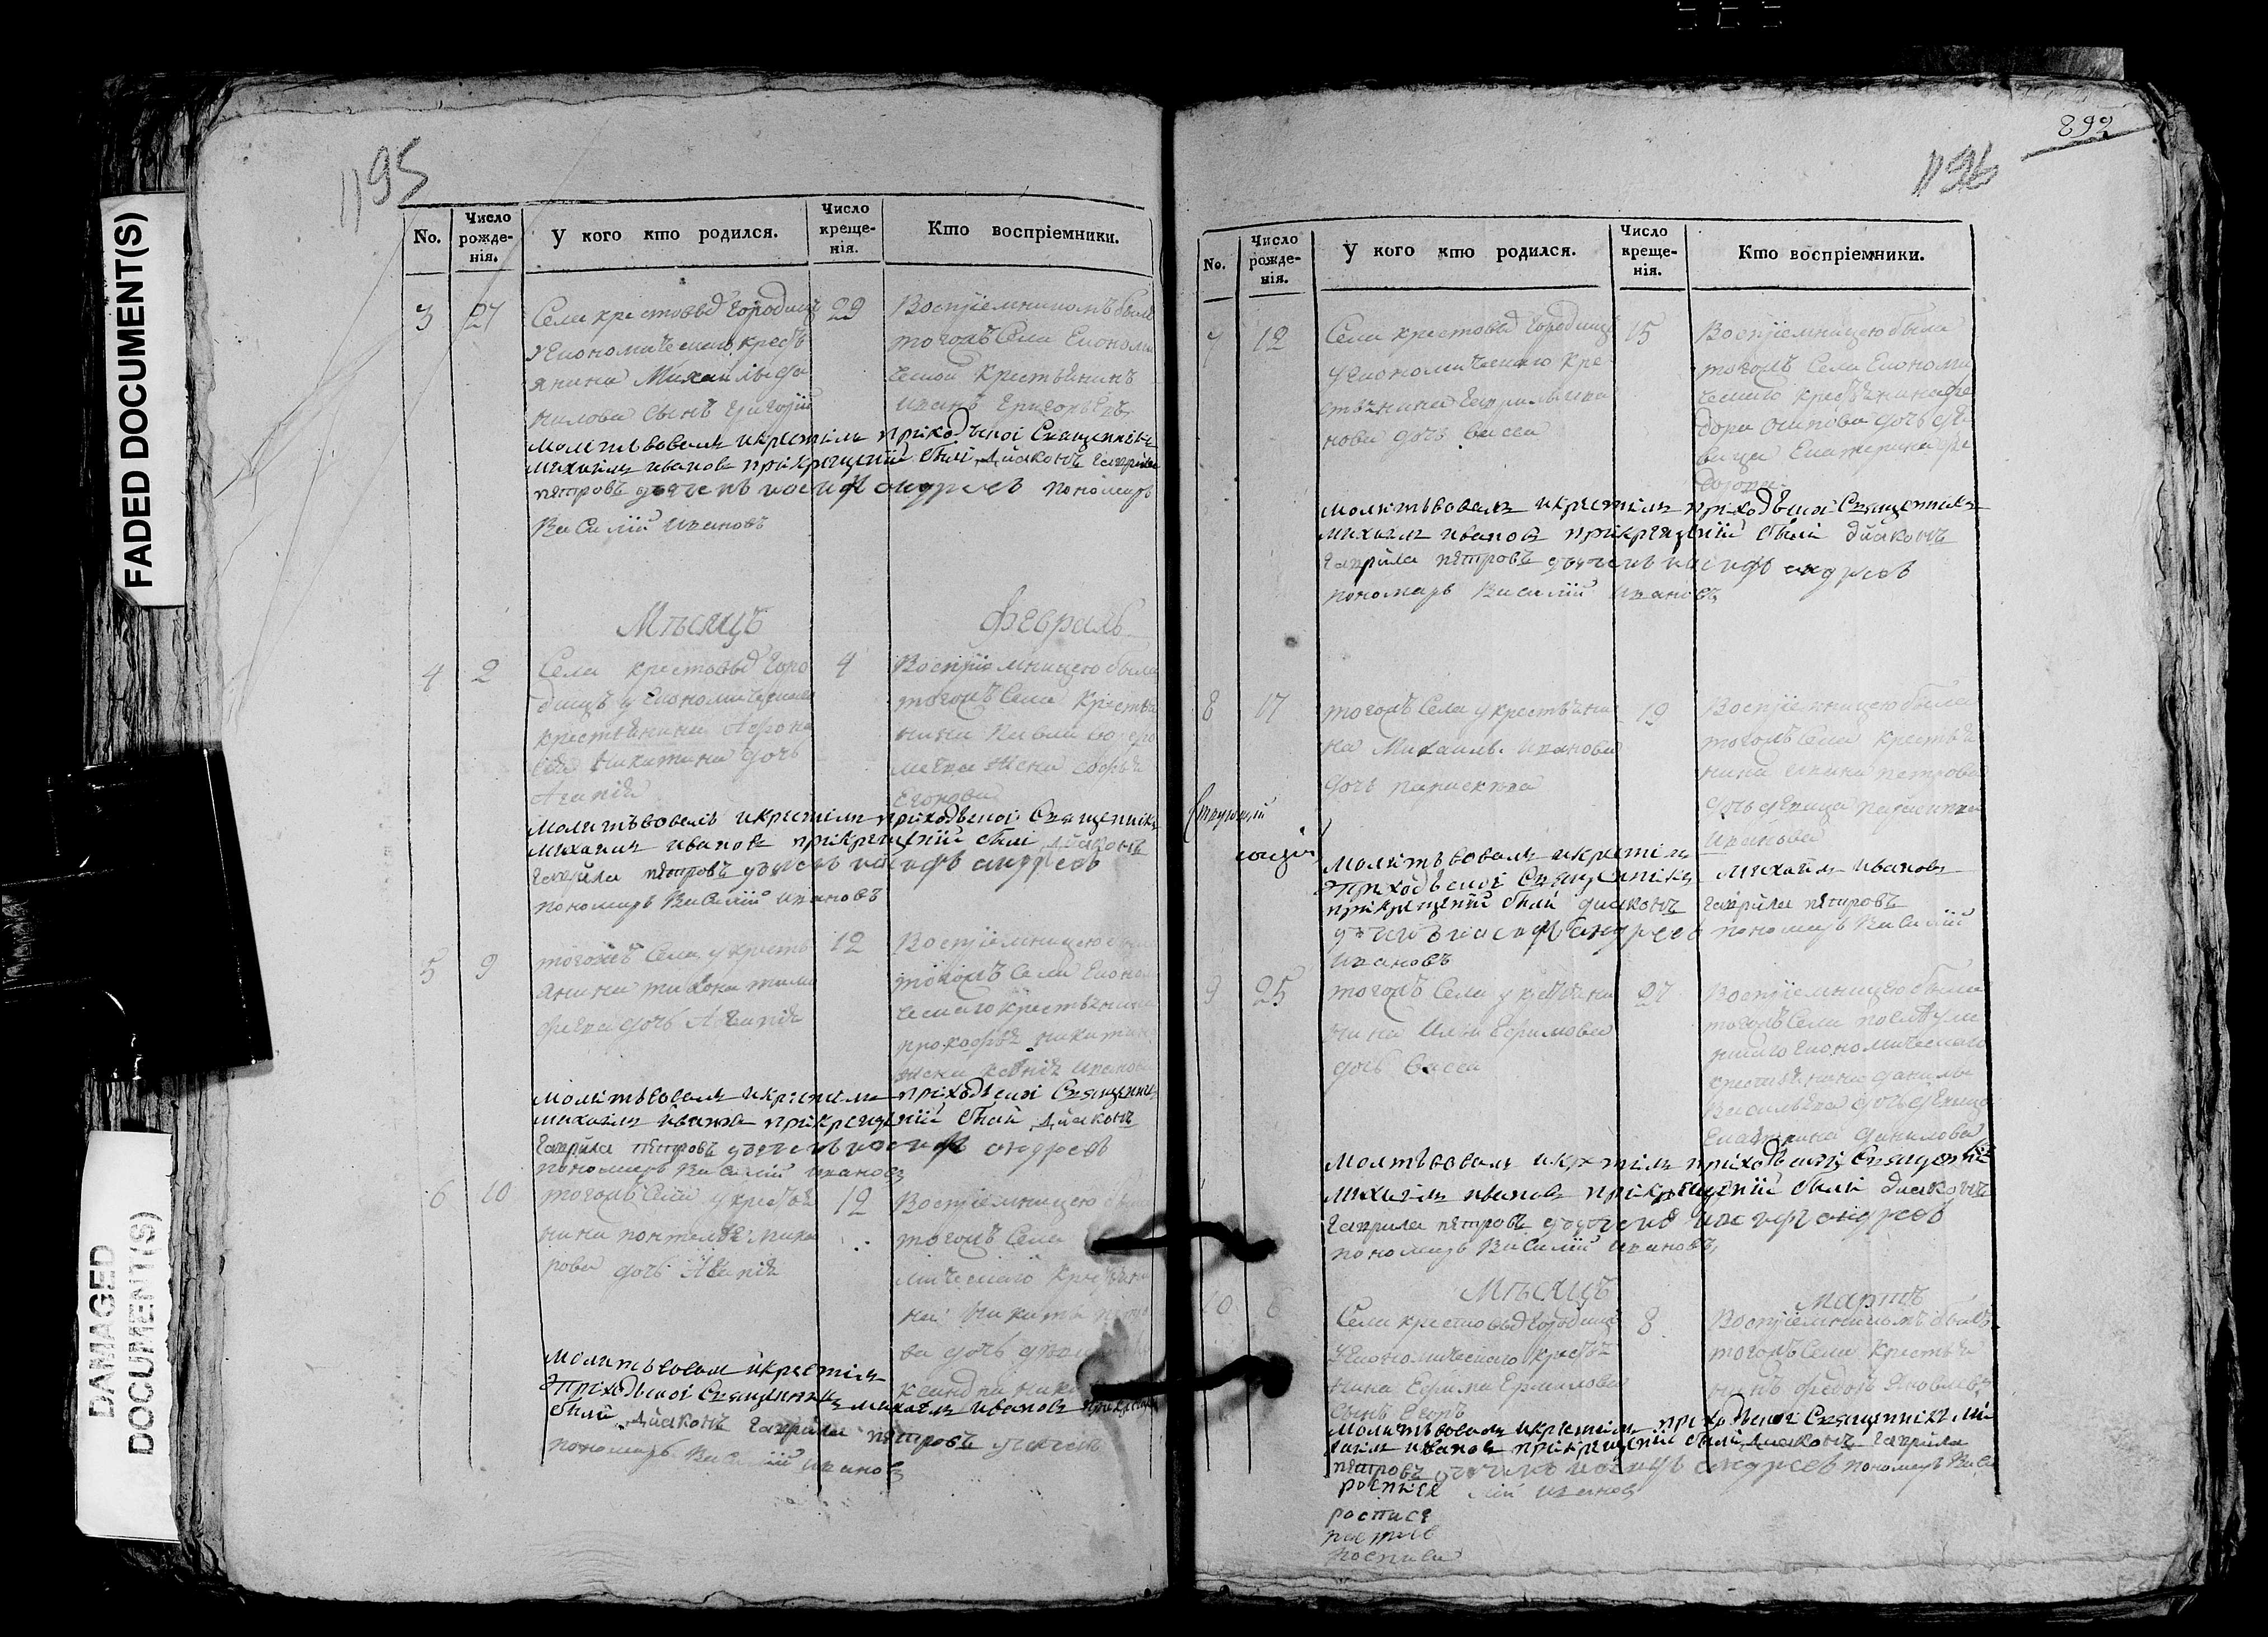 892
1195
No.
Число рожденія.
У кого кто родился.
Число крещенія.
Кто воспріемники.
3 27 29
Села крестовыхъ городищъ
уекономическаго кресть
янина Михайлы да
нилова сынъ григорій
Воспріемникомъ былъ
тогожъ Села Економи
ческой крестьянинъ
иванъ григорьевъ
молитвовалъ икрестилъ приходской Священникъ
михаилъ ивановъ прикрещеніи были діаконъ гаврила
петровъ дьячекъ иосифъ андреевъ пономарь
Василий ивановъ
Мѣсяцъ Февраль
4 2 4
Села крестовыхъ горо
дищъ уекономическаго
крестьянина
никитина дочь
Агапія
Воспріемницею была
тогожъ Села крестья
нина
жена софья
молитвовалъ икрестилъ приходской Священникъ
михаилъ ивановъ прикрещеніи были діаконъ
гаврила петровъ дьячекъ иосифъ андреевъ
пономарь Василий ивановъ
5 9 12
тогожъ Села укресть
янина тихона тимо
феева дочь Агапія
Воспріемницею была
тогожъ Села Економи
ческаго крестьянина
прокофья никитина
жена ксенія иванова
молитвовалъ икрестилъ приходской Священникъ
михаилъ ивановъ прикрещеніи были діаконъ
гаврила петровъ дьячекъ иосифъ андреевъ
пономарь Василий ивановъ
6 10 12
тогожъ Села укрестья
нина дочь Агапія
Воспріемницею
тогожъ Села
мическаго крестьяни
на никиты
ва дочь
молитвовалъ икрестилъ
приходской Священникъ михаилъ ивановъ прикрещеніи
были діаконъ гаврила петровъ дьячекъ
пономарь Василий ивановъ
1196
No.
Число рожденія.
У кого кто родился.
Число крещенія.
Кто воспріемники.
7 12 15
Села крестовыхъ городищъ
уекономическаго кре
стьянина гаврилы ива
нова дочь васса
Воспріемницею была
тогожъ Села Економи
ческаго крестьянина фе
дора осипова дочь дѣ
вица Екатерина фе
дорова
молитвовалъ икрестилъ приходской Священникъ
михаилъ ивановъ прикрещеніи были діаконъ
гаврила петровъ дьячекъ иосифъ андреевъ
пономарь Василий ивановъ
8 17 19
тогожъ Села укрестьяни
на Михаилы иванова
дочь параскева
Воспріемницею была
тогожъ Села крестья
нина ивана петрова
дочь дѣвица параскева
иванова
молитвовалъ икрестилъ
приходской Священникъ михаилъ ивановъ
прикрещеніи были діаконъ гаврила петровъ
дьячекъ иосифъ андреевъ пономарь Василий
ивановъ
9 25 27
тогожъ Села укрестьяни
на Ильи Ефимова
дочь васса
Воспріемницею была
тогожъ Села
Економическаго
крестьянина данилы
Васильева дочь дѣвица
Екатерина данилова
молитвовалъ икрестилъ приходской Священникъ
михаилъ ивановъ прикрещеніи были діаконъ
гаврила петровъ дьячекъ иосифъ андреевъ
пономарь Василий ивановъ
Мѣсяцъ мартъ
10 6 8
Села крестовыхъ городищъ
уекономическаго крестья
нина Ефима Ермилова
сынъ Егоръ
Воспріемникомъ былъ
тогожъ Села крестья
нинъ федоръ яковлевъ
молитвовалъ икрестилъ приходской Священникъ ми
хаилъ ивановъ прикрещеніи были діаконъ гаврила
петровъ дьячекъ иосифъ андреевъ пономарь Васи
лий ивановъ
FADED DOCUMENT(S)
DAMAGED DOCUMENT(S)